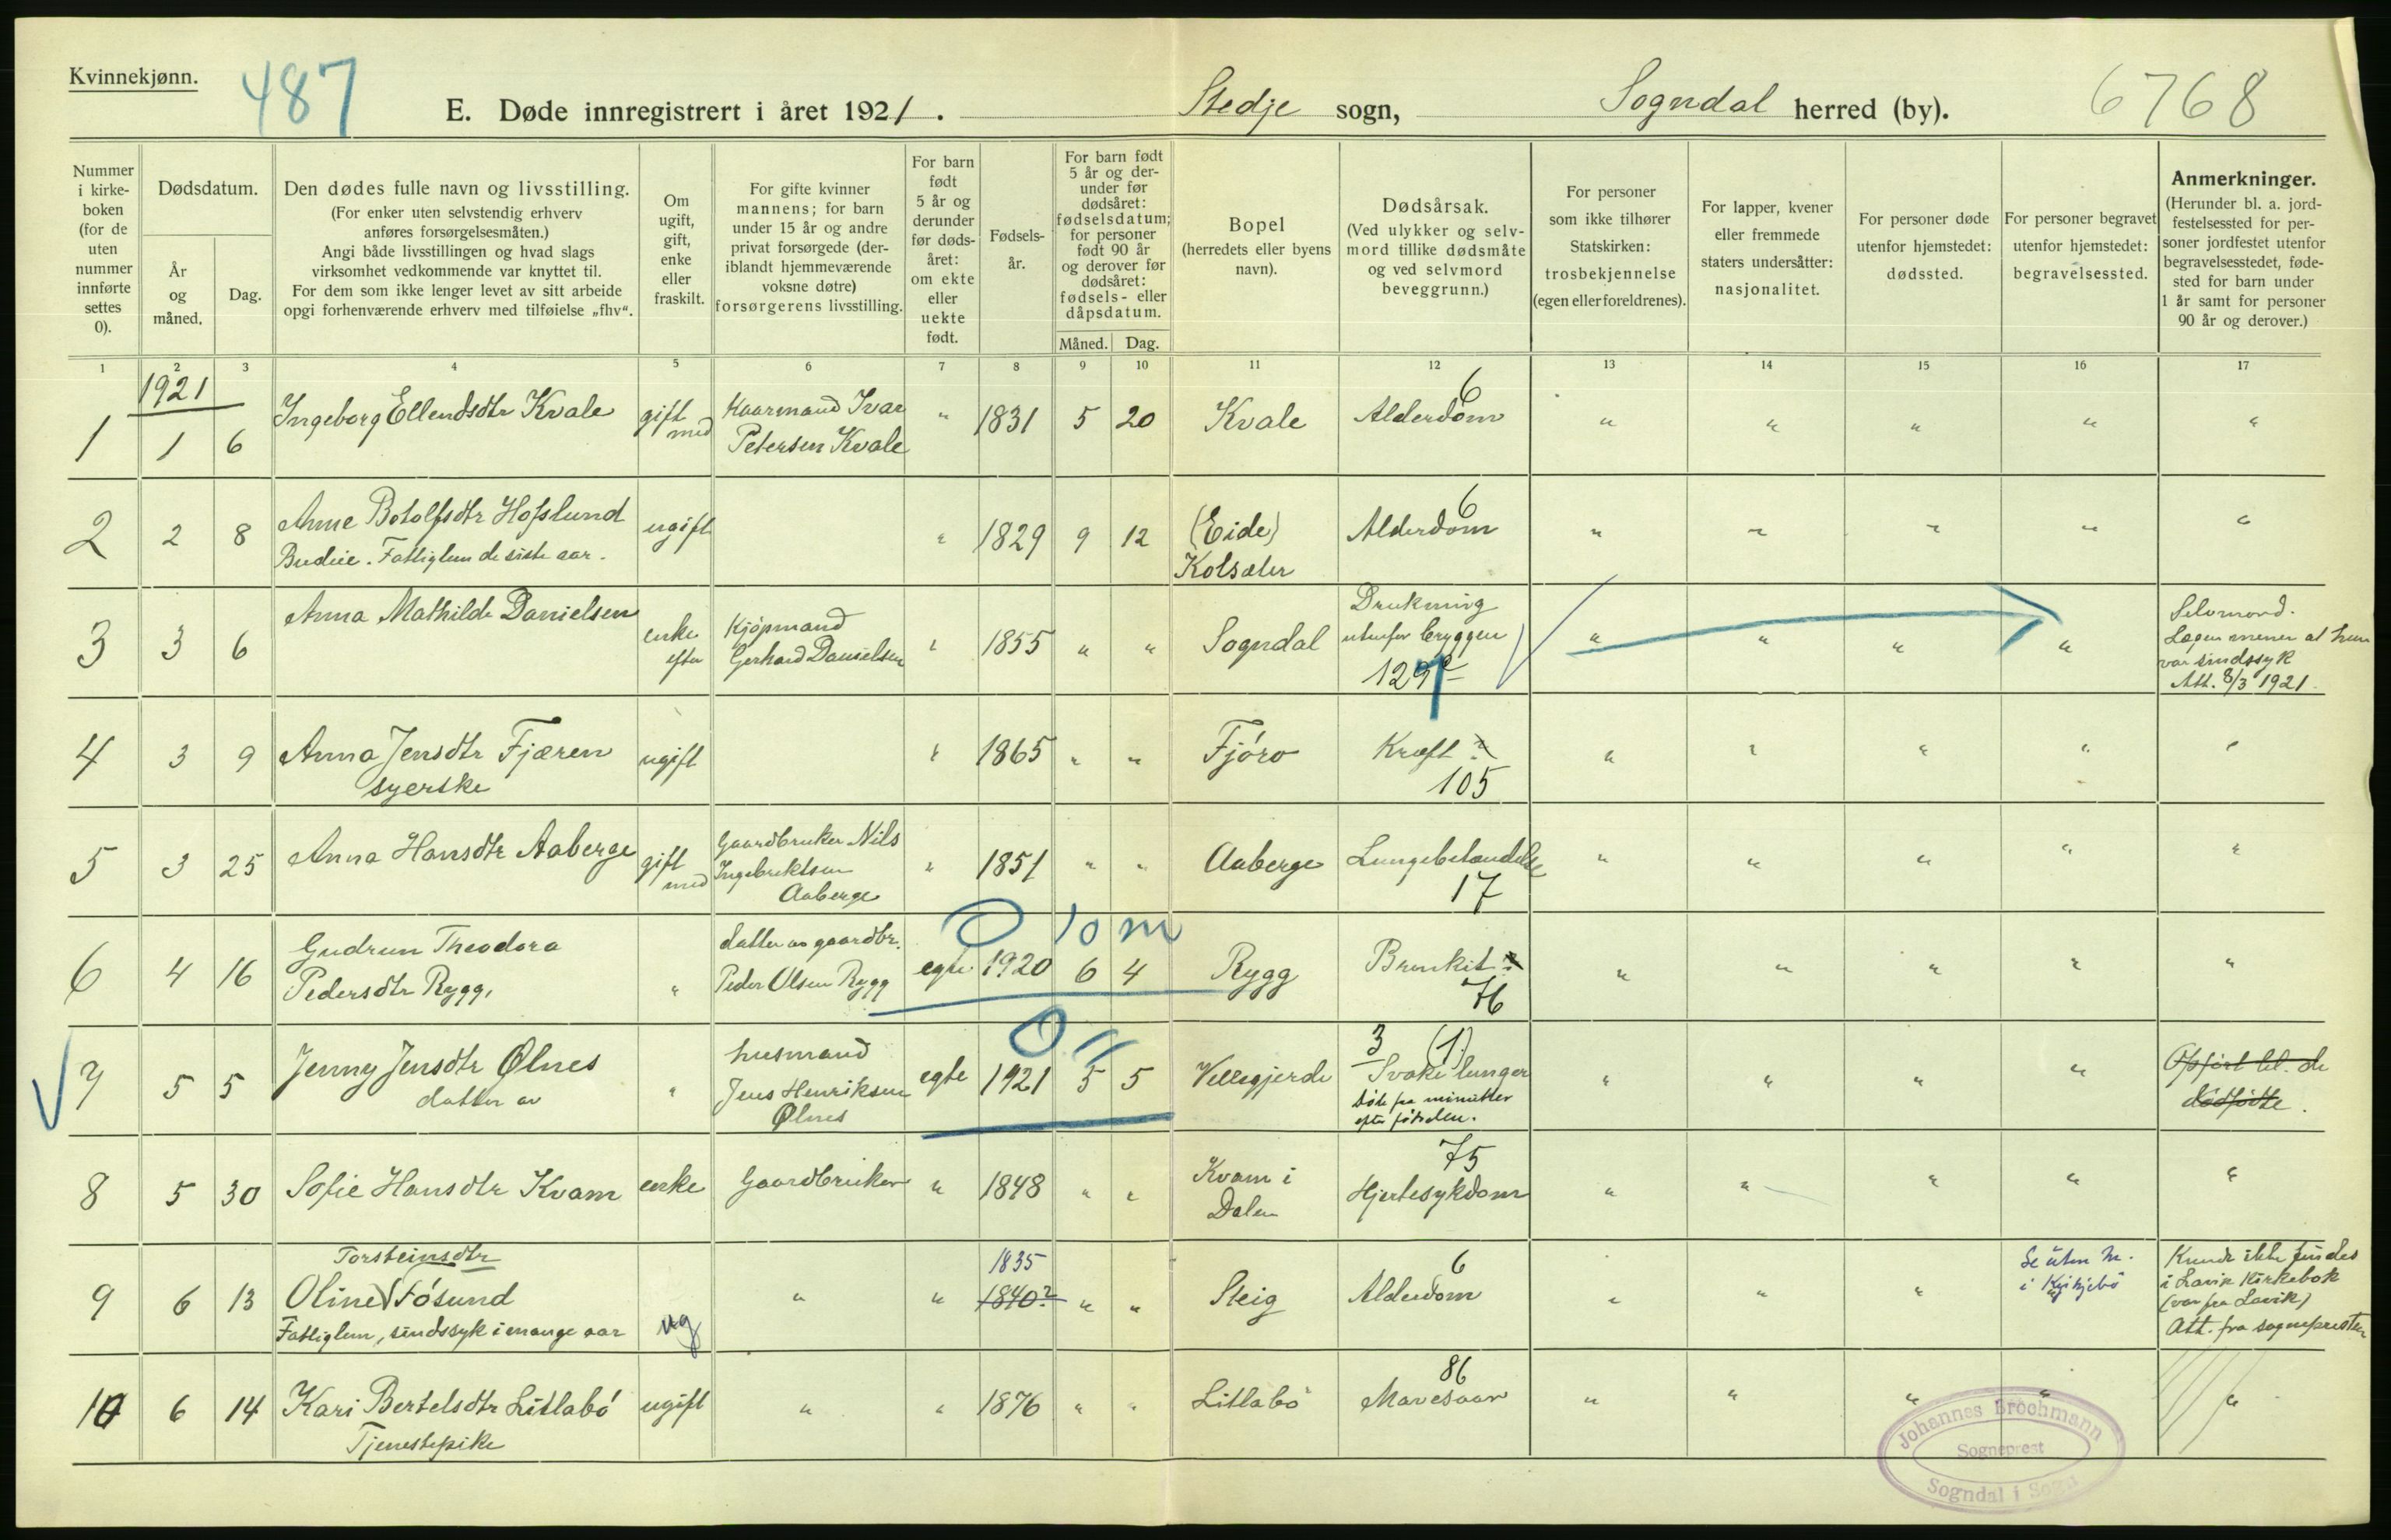 Kvinnekjønn.
487
E. Døde innregistrert i året 1921.
Stedje sogn,
Sogndal herred (by).
6768
Nummer
i kirke-
boken
(for de
uten
nummer
innførte
settes
0).
Dødsdatum.
År
og
måned.
Dag.
Den dødes fulle navn og livsstilling.
(For enker uten selvstendig erhverv
anføres forsørgelsesmåten.)
Angi både livsstillingen og hvad slags
virksomhet vedkommende var knyttet til.
For dem som ikke lenger levet av sitt arbeide
opgi forhenværende erhverv med tilføielse „fhv“.
Om
ugift,
gift,
enke
eller
fraskilt.
For gifte kvinner
mannens; for barn
under 15 år og andre
privat forsørgede (der-
iblandt hjemmeværende
voksne døtre)
forsørgerens livsstilling.
For barn
født
5 år og
derunder
før døds-
året:
om ekte
eller
uekte
født.
Fødsels-
år.
For barn født
5 år og der-
under før
dødsåret:
fødselsdatum;
for personer
født 90 år
og derover før
dødsåret:
fødsels- eller
dåpsdatum.
Måned. Dag.
Bopel
(herredets eller byens
navn).
Dødsårsak.
(Ved ulykker og selv-
mord tillike dødsmåte
og ved selvmord
beveggrunn.)
For personer
som ikke tilhører
Statskirken:
trosbekjennelse
(egen eller foreldrenes).
For lapper, kvener
eller fremmede
staters undersåtter:
nasjonalitet.
For personer døde
utenfor hjemstedet:
dødssted.
For personer begravet
utenfor hjemstedet:
begravelsessted.
Anmerkninger.
(Herunder bl. a. jord-
festelsessted for per-
soner jordfestet utenfor
begravelsesstedet, føde-
sted for barn under
1 år samt for personer
90 år og derover.)
1 2 3 4 5 6 7 8 9 10 11 12 13 14 15 16 17
1921
1 1 6
Ingeborg Ellendsdtr Kvale
gift
med
Kaarmand Ivar
Petersen Kvale
" 1831 5 20
Kvale
6
Alderdom
" " " " "
2 2 8
Anne Botolfsdtr Hofslund
Budeie. Fattiglem de siste aar.
ugift
" 1829 9 12
(Eide)
Kolsæter
6
Alderdom
" " " " "
3 3 6
Anna Mathilde Danielsen
enke
efter
Kjøpmand
Gerhard Danielsen
" 1855 " "
Sogndal
Drukning
utenfor bryggen
129
" " " "
Selvmord.
Lægen mener at hun
var sindssyk
Att. 8/3 1921.
4 3 9
Anna Jensdtr Fjæren
syerske
ugift
" 1865 " "
Fjöro
Kræft ?
105
" " " " "
5 3 25
Anna Hansdtr Aaberge
gift
med
Gaardbruker Nils
Ingebriktsen
Aaberge
" 1851 " "
Aaberge
Lungebetændelse
17
" " " " "
0 10 m
6 4 16
Gudrun Theodora
Pedersdtr Rygg,
"
datter av gaardbr.
Peder Olsen Rygg
egte 1920 6 4
Rygg
Bronkit ?
76
" " " " "
0 11
7 5 5
Jenny Jensdtr Ølnes
datter av
"
husmand
Jens Henriksen
Ølnes
egte 1921 5 5
Vellesgjerde
3 (1)
Svake lunger
døde faa minutter
efter fødselen.
" " " "
Opført bl. de
dødfødte.
8 5 30
Sofie Hansdtr Kvam
enke
Gaardbruker
" 1848 " "
Kvam i
Dalen
75
Hjertesykdom
" " " " "
9 6 13
Torsteinsdtr
Oline Fösund
Fattiglem, sindssyk i mange aar
ug
" "
1835
1840?
" "
Steig
6
Alderdom
" " "
Se uten nr.
i Kyrkjebö
Kunde ikke findes
i Lavik Kirkebok
(var fra Lavik)
Att. fra sognepresten
10 6 14
Kari Bertelsdtr Litlabö
Tjenestepike
ugift
" " 1876 " "
Litlabö
86
Mavesaar
" " " " "
Johannes Bröchmann
Sogneprest
Sogndal i Sogn